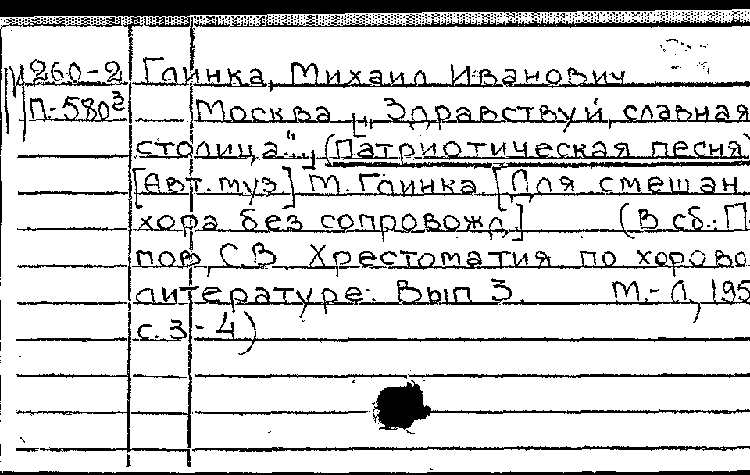 М260-2 Глинка, Михаил Иванович
П-580³ Москва [„Здравствуй, славная
столица"...] (Патриотическая песня)
[Авт. муз.] М. Глинка. [Для смешан.
хора без сопровожд.] (В сб.: П
пов, С.В. Хрестоматия по хорово
литературе. Вып 3. М.-Л, 195
с. 3-4)